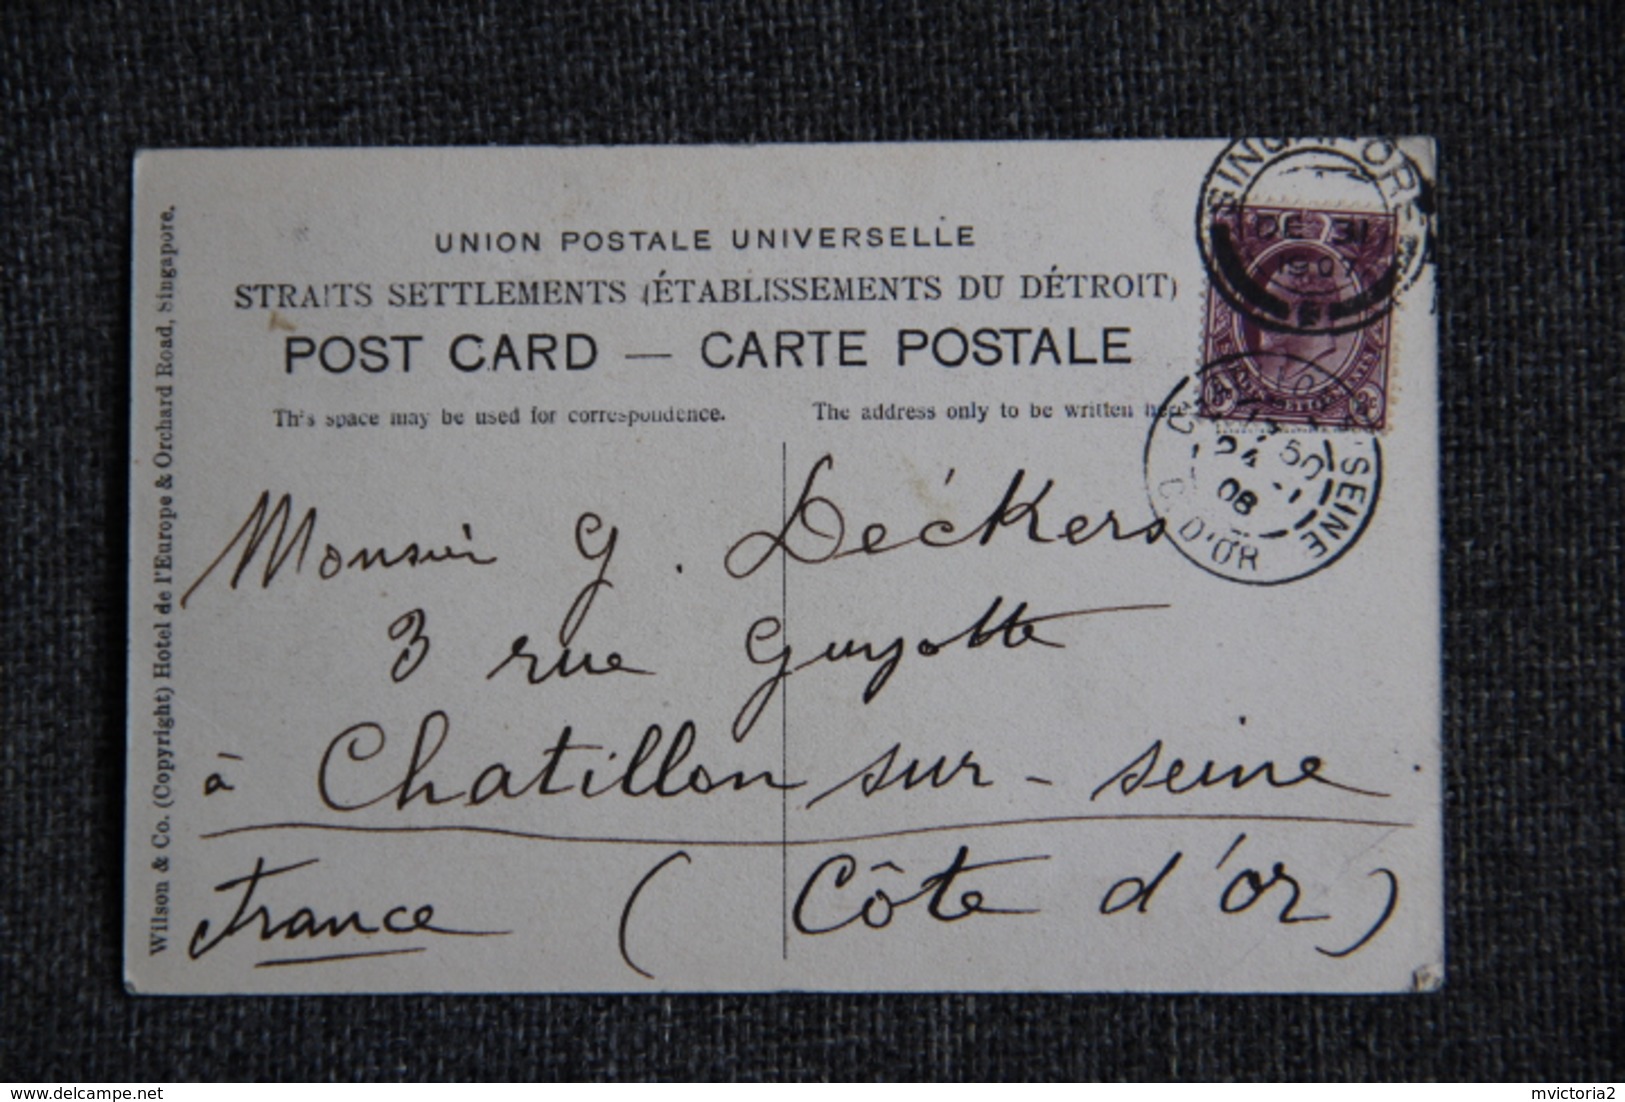 UNION POSTALE UNIVERSELLE
STRAITS SETTLEMENTS (ÉTABLISSEMENTS DU DÉTROIT)
POST CARD — CARTE POSTALE
This space may be used for correspondence.
The address only to be written here
Monsieur G. Déckers
3 rue Guyotte
à Chatillon sur-seine
France (Côte d'or)
Wilson & Co. (Copyright) Hotel de l'Europe & Orchard Road, Singapore.
SINGAPORE
DE 31
1907
SEINE
24
50
08
C. D'OR
3c
delcampe.net
mvictoria2